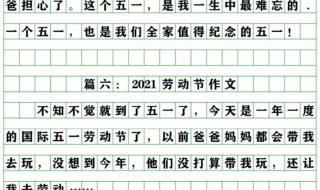 爸担心了。这个五一，是我一生中最难忘的．
一个五一，也是我们全家值得纪念的五一！
篇六：2021 劳动节作文
不知不觉就到了五一了，今天是一年一度
的国际五一劳动节了，以前爸爸妈妈都会带我
去玩，没想到今年，他们没打算带我玩，还让
我去劳动……